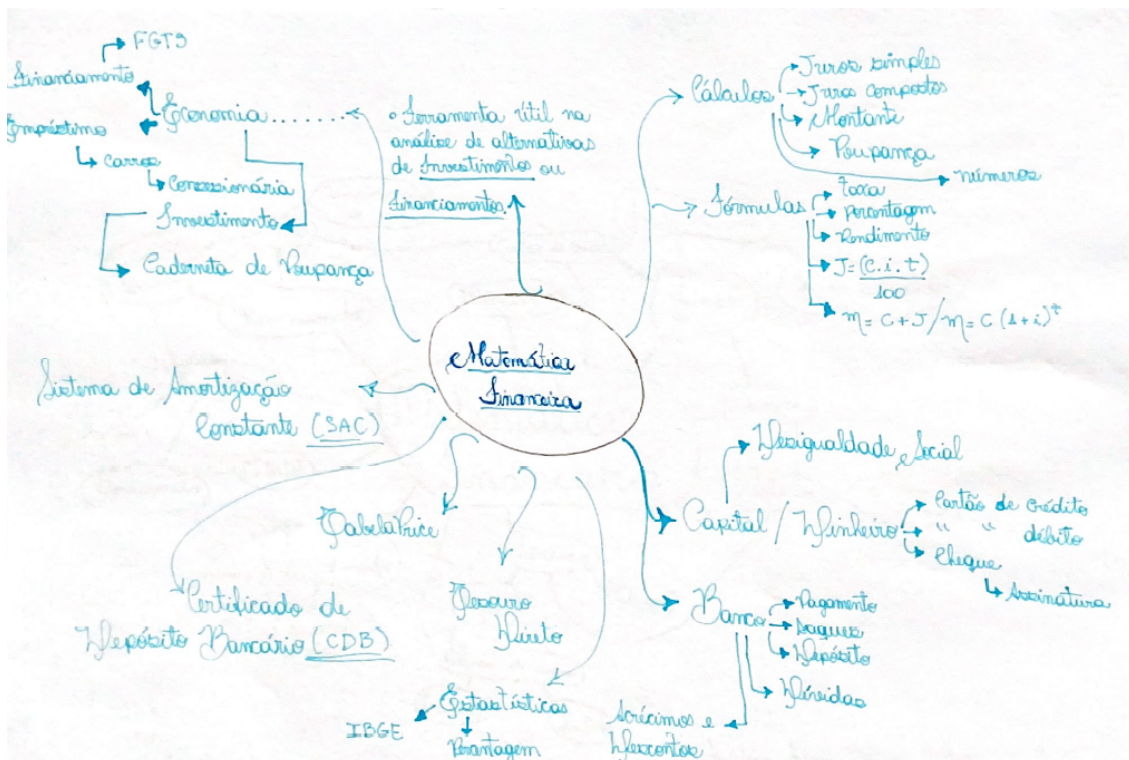 FGTS
Financiamento
Economia.......
Empréstimo
Carros
Concessionária
Investimento
Caderneta de Poupança
• Ferramenta útil na
análise de alternativas
de Investimentos ou
Financiamentos.
Cálculos
Juros simples
Juros compostos
Montante
Poupança
números
Fórmulas
Taxa
Porcentagem
Rendimento
J= (C.i.t)
100
M= C+J/M= C (1+i)^t
Matemática
Financeira
Sistema de Amortização
Constante (SAC)
Tabela Price
Certificado de
Depósito Bancário (CDB)
Tesouro
Direto
Estastísticas
IBGE
Desigualdade Social
Capital / Dinheiro
Cartão de crédito
" " débito
Cheque
Assinatura
Banco
Pagamento
saques
Depósito
Dívidas
Acrécimos e
Descontos